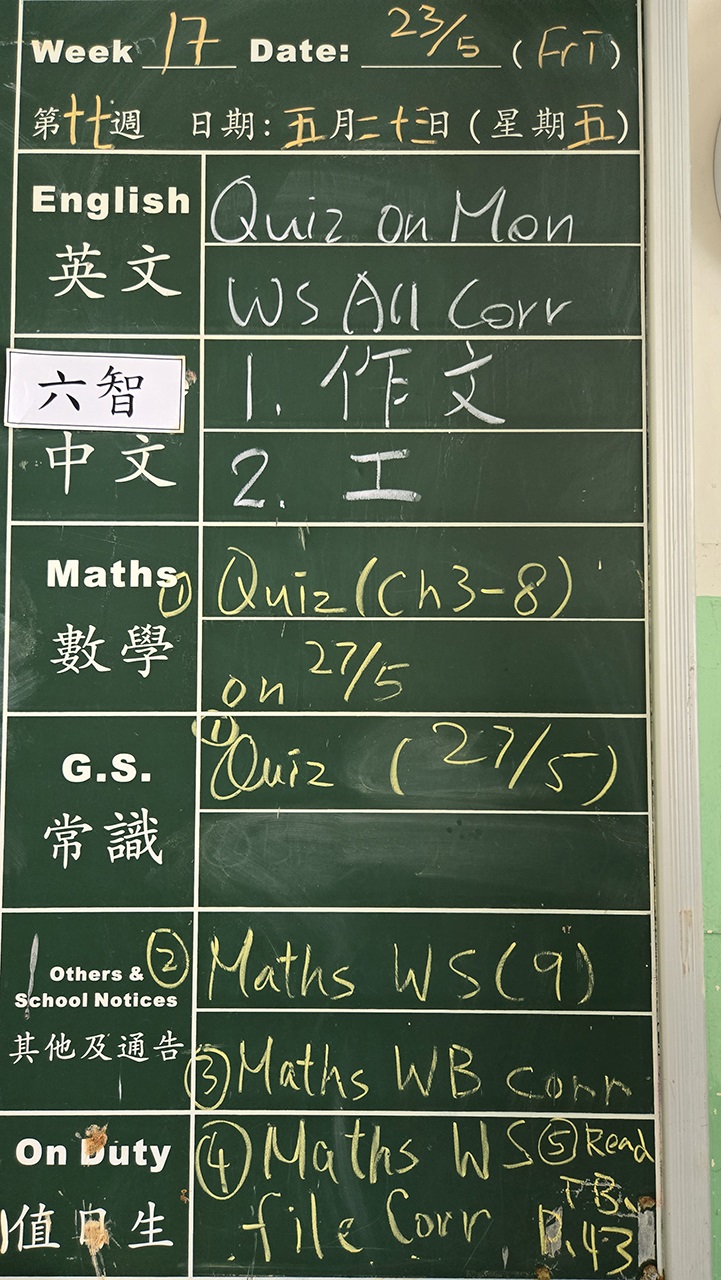 Week 17 Date: 23/5 (Fri)
第十七週 日期：五月二十三日 (星期五)
English Quiz on Mon
英文 WS All Corr
六智 1. 作文
中文 2. 工
Maths ① Quiz (Ch3-8)
數學 on 27/5
G.S. ① Quiz (27/5)
常識
Others & ② Maths WS (9)
School Notices
其他及通告 ③ Maths WB corr
On Duty ④ Maths WS ⑤ Read
值日生 file Corr TB
P.43